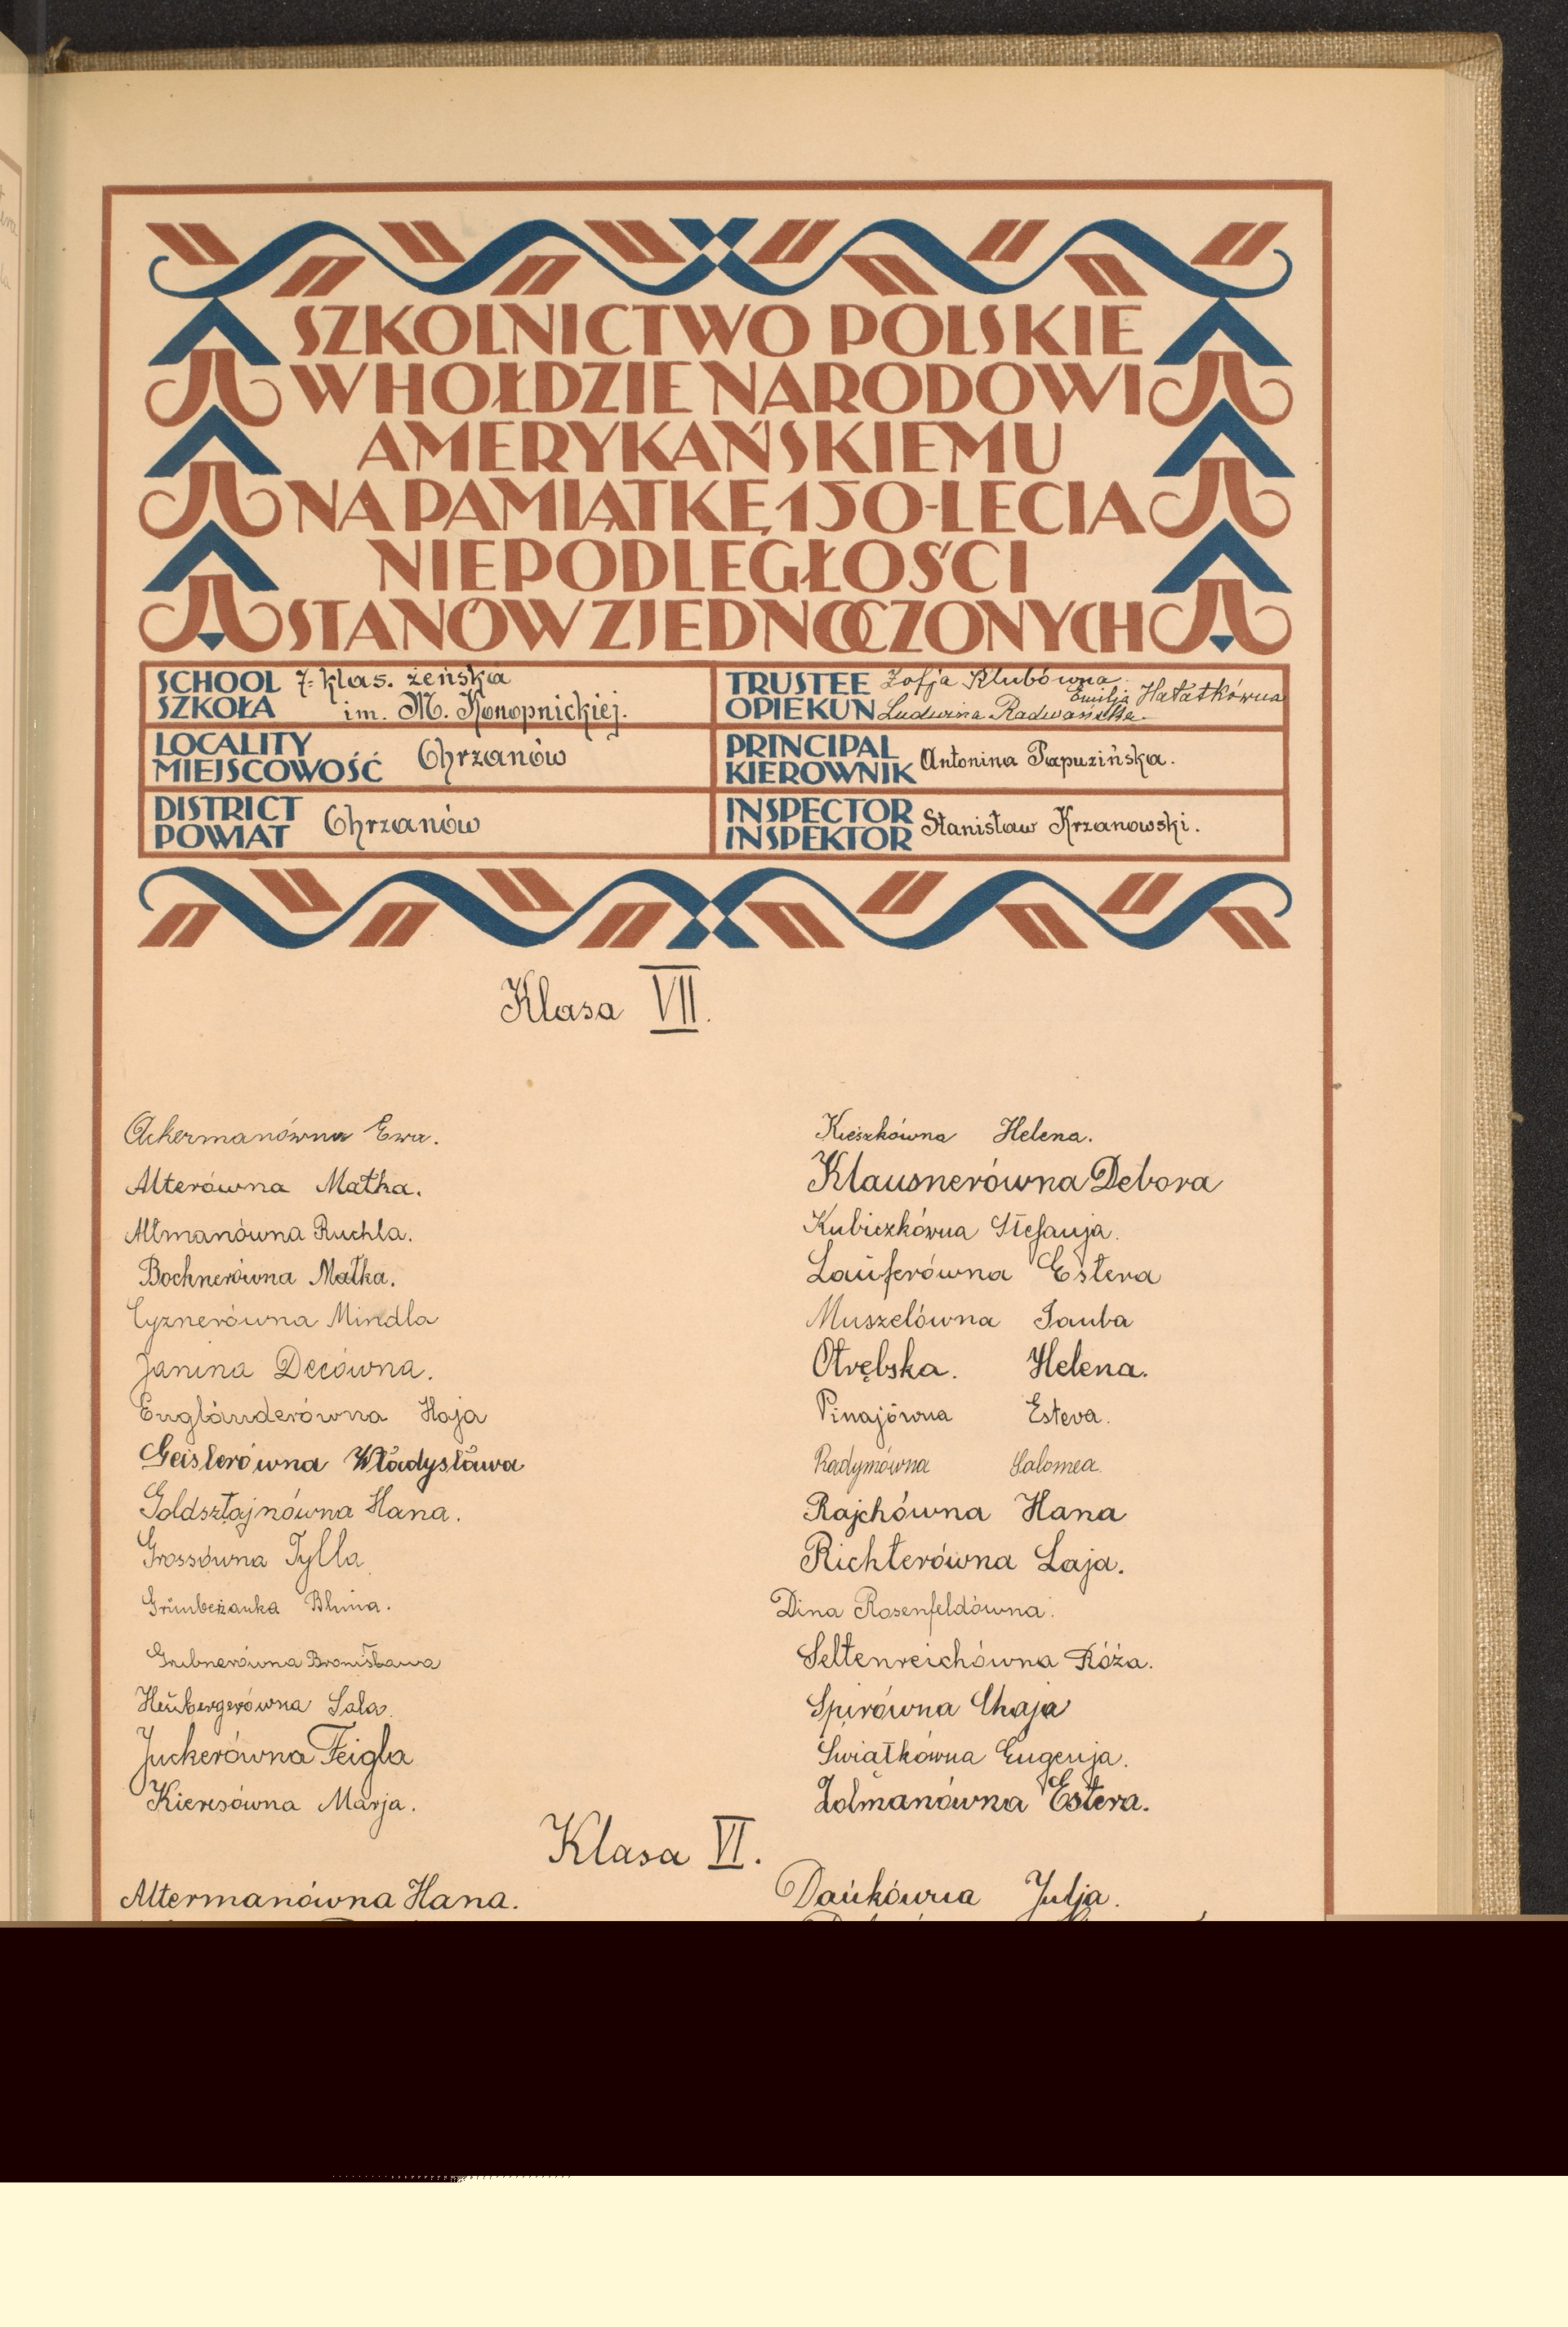 SZKOLNICTWO POLSKIE
W HOŁDZIE NARODOWI
AMERYKAŃSKIEMU
NA PAMIĄTKĘ 150-LECIA
NIEPODLEGŁOŚCI
STANÓW ZJEDNOCZONYCH
SCHOOL
SZKOŁA
7-klas. żeńska
im. M. Konopnickiej.
TRUSTEE
OPIEKUN
Zofja Klubówna
Emilja Hałatkówna
Ludwina Radwańska
LOCALITY
MIEJSCOWOŚĆ
Chrzanów
PRINCIPAL
KIEROWNIK
Antonina Papuzińska.
DISTRICT
POWIAT
Chrzanów
INSPECTOR
INSPEKTOR
Stanisław Krzanowski.
Klasa VII.
Ackermanówna Ewa.
Alterówna Matka.
Altmanówna Ruchla.
Bochnerówna Matka.
Cyznerówna Mindla
Janina Decówna.
Engländerówna Haja
Geislerówna Władysława
Goldsztajnówna Hana.
Grossówna Tylla
Bluma.
Grubnerówna Bronisława
Heubergerówna Sala.
Juckerówna Feigla
Kieresówna Marja.
Kieszkówna Helena.
Klausnerówna Debora
Kubiczkówna Stefanja.
Lauferówna Estera
Muszelówna Tauba
Otrębska. Helena.
Pinajówna Estera.
Radymówna Salomea.
Rajchówna Hana
Richterówna Laja.
Dina Rosenfeldówna.
Seltenreichówna Róża.
Spirówna Chaja
Świątkówna Eugenja.
Zolmanówna Estera.
Klasa VI.
Altermanówna Hana.
Dańkówna Julja.